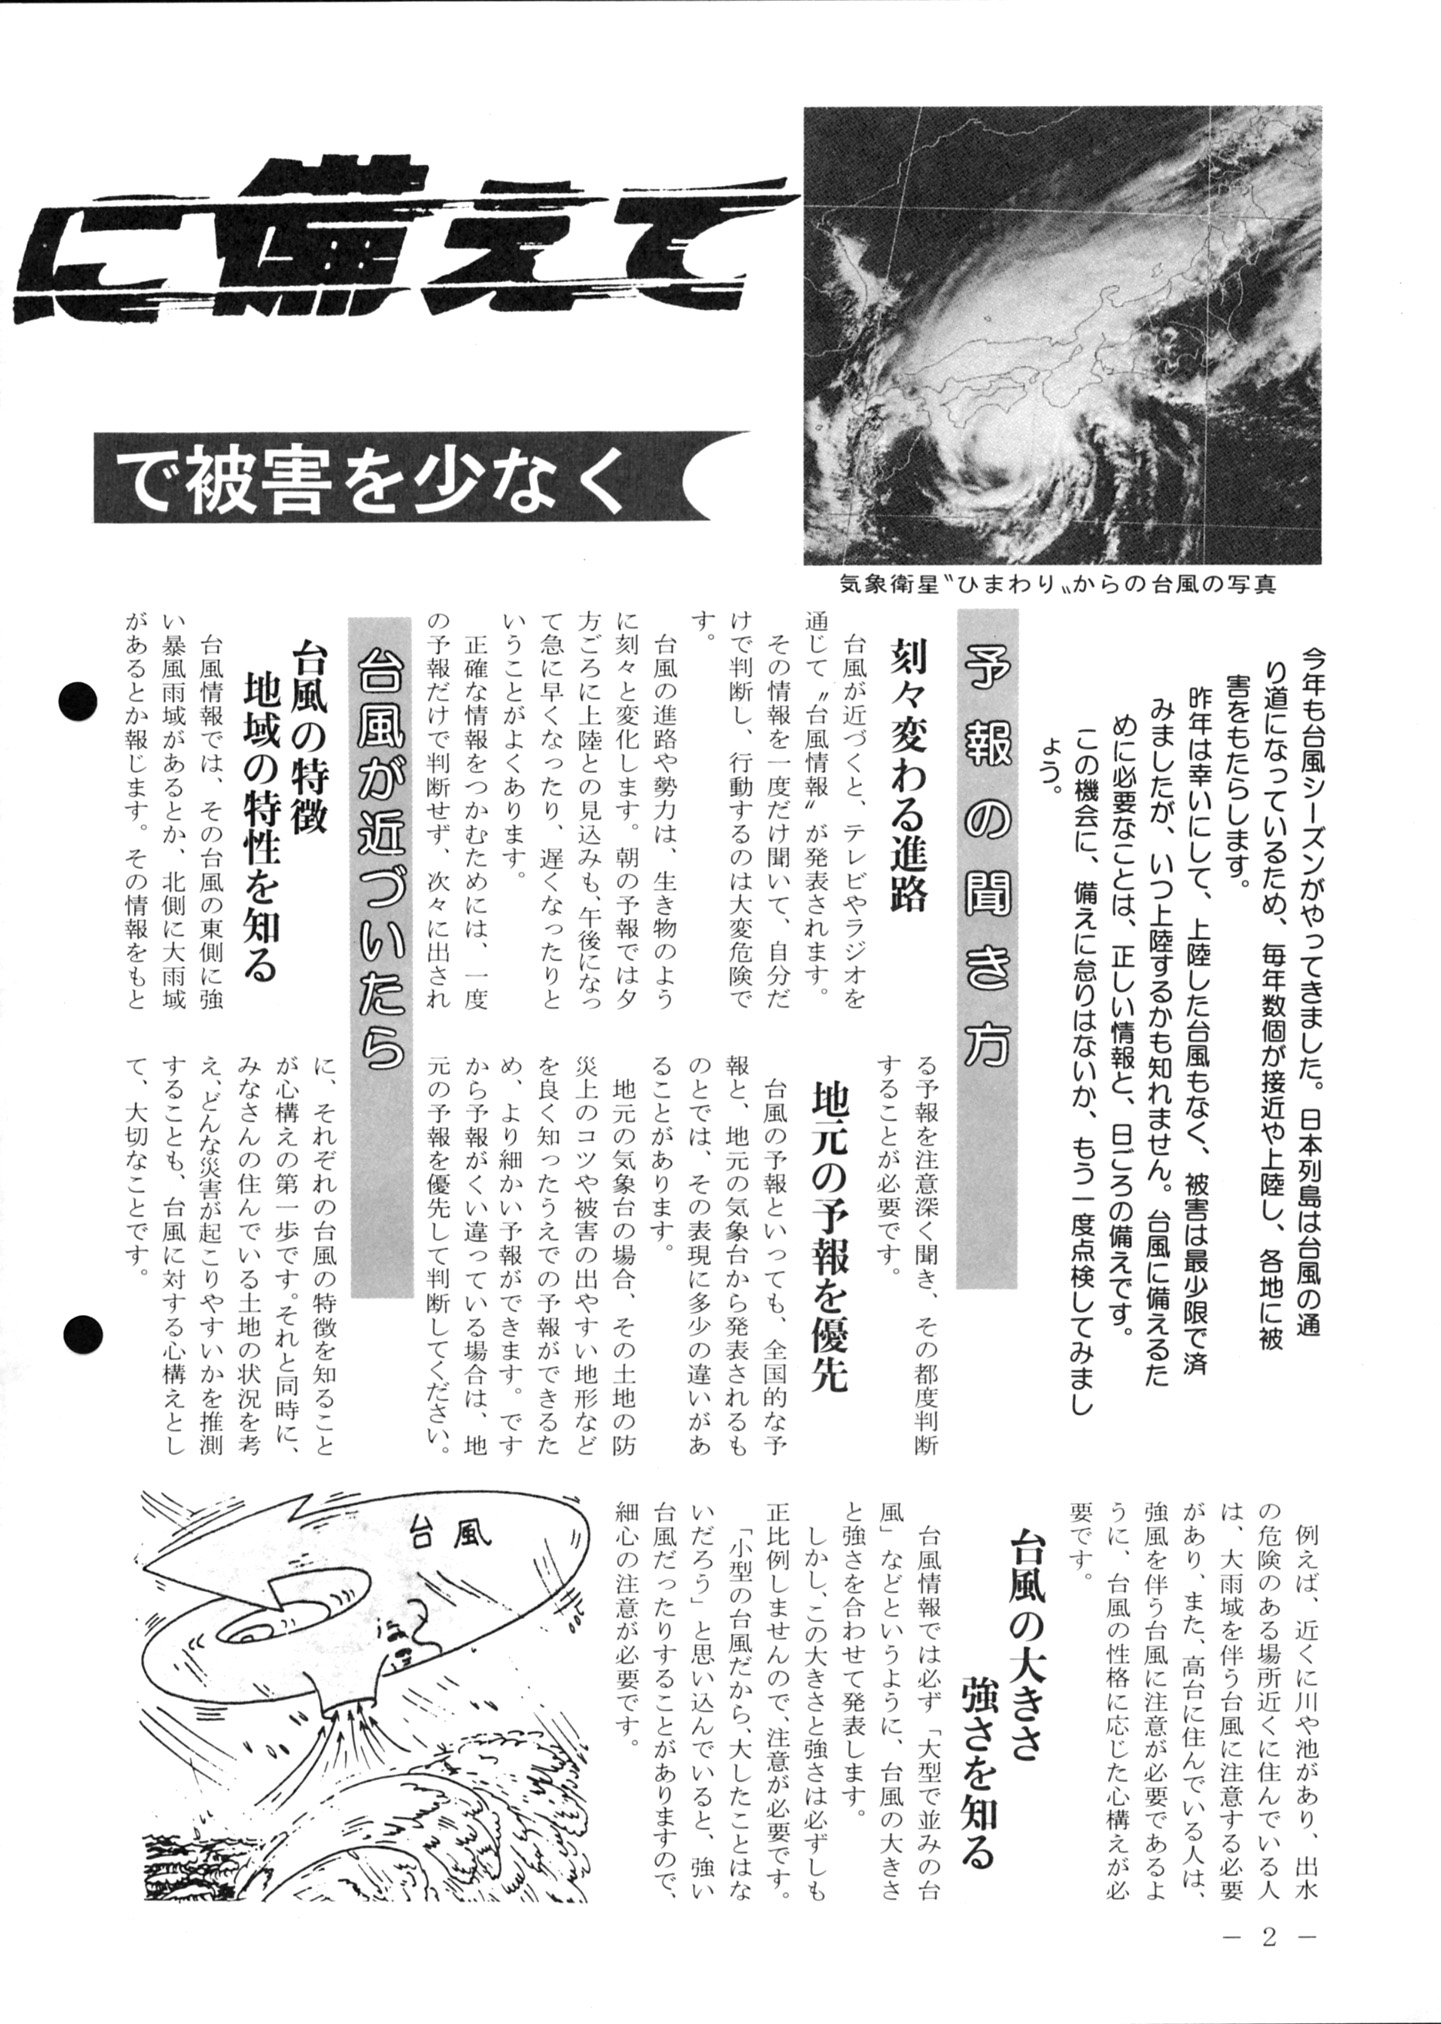 に備えて
で被害を少なく
気象衛星〝ひまわり〟からの台風の写真
今年も台風シーズンがやってきました。日本列島は台風の通
り道になっているため、毎年数個が接近や上陸し、各地に被
害をもたらします。
昨年は幸いにして、上陸した台風もなく、被害は最少限で済
みましたが、いつ上陸するかも知れません。台風に備えるた
めに必要なことは、正しい情報と、日ごろの備えです。
この機会に、備えに怠りはないか、もう一度点検してみまし
ょう。
予報の聞き方
刻々変わる進路
台風が近づくと、テレビやラジオを
通じて〝台風情報〟が発表されます。
その情報を一度だけ聞いて、自分だ
けで判断し、行動するのは大変危険で
す。
台風の進路や勢力は、生き物のよう
に刻々と変化します。朝の予報では夕
方ごろに上陸との見込みも、午後になっ
て急に早くなったり、遅くなったりと
いうことがよくあります。
正確な情報をつかむためには、一度
の予報だけで判断せず、次々に出され
る予報を注意深く聞き、その都度判断
することが必要です。
地元の予報を優先
台風の予報といっても、全国的な予
報と、地元の気象台から発表されるも
のとでは、その表現に多少の違いがあ
ることがあります。
地元の気象台の場合、その土地の防
災上のコツや被害の出やすい地形など
を良く知ったうえでの予報ができるた
め、より細かい予報ができます。です
から予報がくい違っている場合は、地
元の予報を優先して判断してください。
台風が近づいたら
台風の特徴
地域の特性を知る
台風情報では、その台風の東側に強
い暴風雨域があるとか、北側に大雨域
があるとか報じます。その情報をもと
に、それぞれの台風の特徴を知ること
が心構えの第一歩です。それと同時に、
みなさんの住んでいる土地の状況を考
え、どんな災害が起こりやすいかを推測
することも、台風に対する心構えとし
て、大切なことです。
例えば、近くに川や池があり、出水
の危険のある場所近くに住んでいる人
は、大雨域を伴う台風に注意する必要
があり、また、高台に住んでいる人は、
強風を伴う台風に注意が必要であるよ
うに、台風の性格に応じた心構えが必
要です。
台風の大きさ
強さを知る
台風情報では必ず「大型で並みの台
風」などというように、台風の大きさ
と強さを合わせて発表します。
しかし、この大きさと強さは必ずしも
正比例しませんので、注意が必要です。
「小型の台風だから、大したことはな
いだろう」と思い込んでいると、強い
台風だったりすることがありますので、
細心の注意が必要です。
台風
― 2 ―